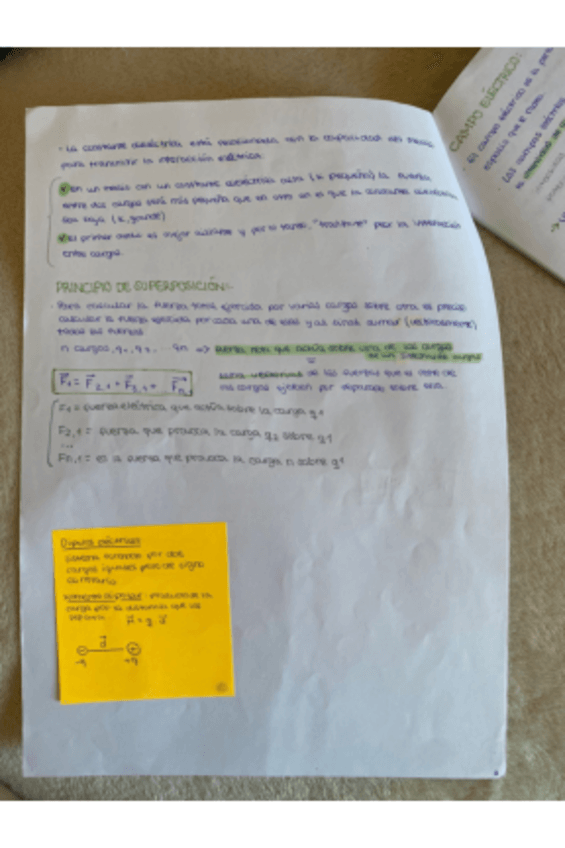 · La constante dieléctrica está relacionada con la capacidad del medio
para transmitir la interacción eléctrica.
en un medio con una constante dieléctrica alta (k pequeña) la fuerza
entre dos cargas será más pequeña que en otro en el que la constante dieléctrica
sea baja (k grande)
el primer medio es mejor aislante y por lo tanto, "trasmite" peor la interacción
entre cargas.
PRINCIPIO DE SUPERPOSICIÓN:
· Para calcular la fuerza total ejercida por varias cargas sobre otra es preciso
calcular la fuerza ejercida por cada una de ellas y al final sumar (vectorialmente)
todas las fuerzas
n cargas, q1, q2, ... qn => fuerza neta que actúa sobre una de las cargas
de un sistema de cargas
=
suma vectorial de las fuerzas que el resto de
las cargas ejercen por separado sobre ella.
F1 = F2,1 + F3,1 + Fn
F1 = fuerza eléctrica que actúa sobre la carga q1
F2,1 = fuerza que provoca la carga q2 sobre q1
...
Fn,1 = es la fuerza que provoca la carga n sobre q1
Dipolo eléctrico
sistema formado por dos
cargas iguales pero de signo
contrario
momento dipolar: producto de la
carga por la distancia que las
separa. = q · d
d
- +
-q +q
CAMPO ELÉCTRICO:
· El campo eléctrico es la
espacio que le rodea.
· Las cargas eléctricas